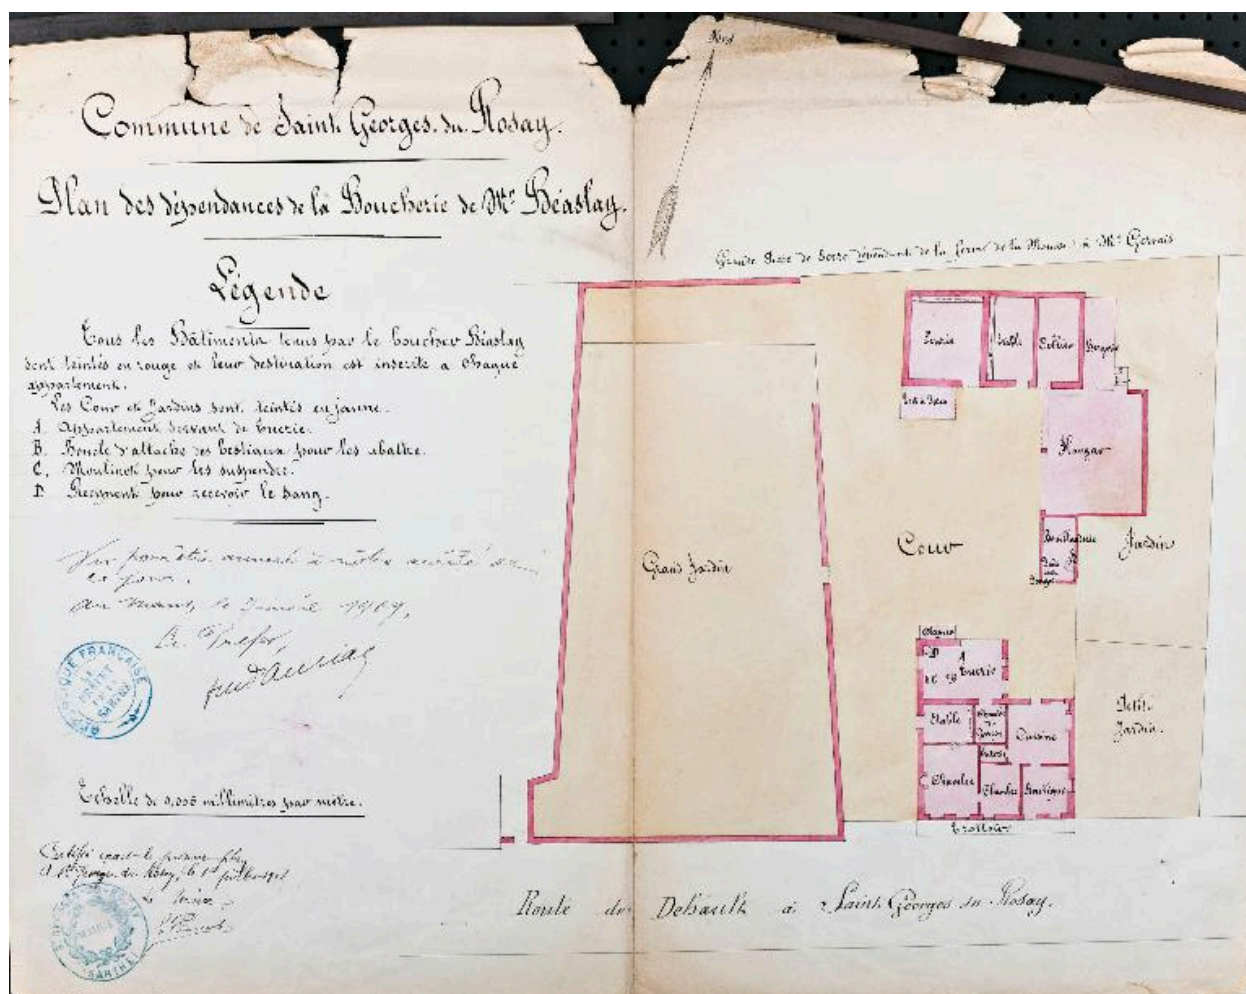 Nord
Commune de Saint Georges du Rosay.
Plan des dépendances de la Boucherie de Mr Béaslay.
Légende
Tous les Bâtiments tenus par le boucher Béaslay
sont teintés en rouge et leur destination est inscrite à chaque
appartement.
Les Cour et Jardins sont teintés en jaune.
A. Appartement servant de tuerie.
B. Boucle d'attache des bestiaux pour les abattre.
C. Moulinet pour les suspendre.
D. Récipient pour recevoir le sang.
Vu pour être annexé à notre arrêté
ce jour.
au Mans, le 1909,
Le Préfet,
RÉPUBLIQUE FRANÇAISE
Echelle de 0,005 millimètres par mètre.
Certifié exact le présent plan
à St Georges du Rosay, le 1er
le Maire
(SARTHE)
Grande pièce de terre dépendante de la ferme de la à Mr Gervais
Ecurie
Etable
Cellier
Hangar
Grand Jardin
Cour
Jardin
D
A
C B Tuerie
Etable
Cuisine
Chambre
Chambre
Boutique
Trottoir
Petit
Jardin.
Route de Dehault à Saint Georges du Rosay.